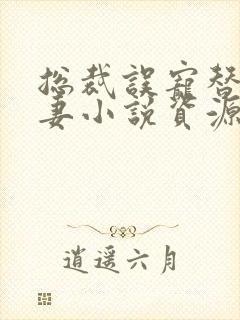 总裁误宠替
妻小说资源
逍遥六月